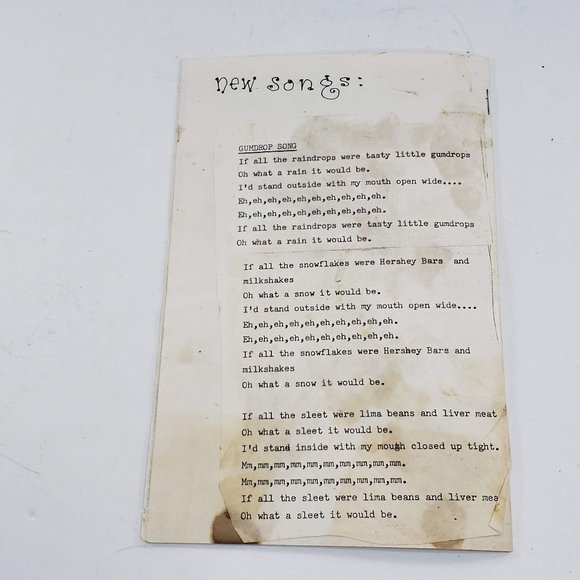 new songs:
GUMDROP SONG
If all the raindrops were tasty little gumdrops
Oh what a rain it would be.
I'd stand outside with my mouth open wide....
Eh,eh,eh,eh,eh,eh,eh,eh,eh,eh.
Eh,eh,eh,eh,eh,eh,eh,eh,eh,eh.
If all the raindrops were tasty little gumdrops
Oh what a rain it would be.
If all the snowflakes were Hershey Bars and
milkshakes
Oh what a snow it would be.
I'd stand outside with my mouth open wide....
Eh,eh,eh,eh,eh,eh,eh,eh,eh,eh.
Eh,eh,eh,eh,eh,eh,eh,eh,eh,eh.
If all the snowflakes were Hershey Bars and
milkshakes
Oh what a snow it would be.
If all the sleet were lima beans and liver meat
Oh what a sleet it would be.
I'd stand inside with my mouth closed up tight.
Mm,mm,mm,mm,mm,mm,mm,mm,mm,mm.
Mm,mm,mm,mm,mm,mm,mm,mm,mm,mm.
If all the sleet were lima beans and liver mea
Oh what a sleet it would be.